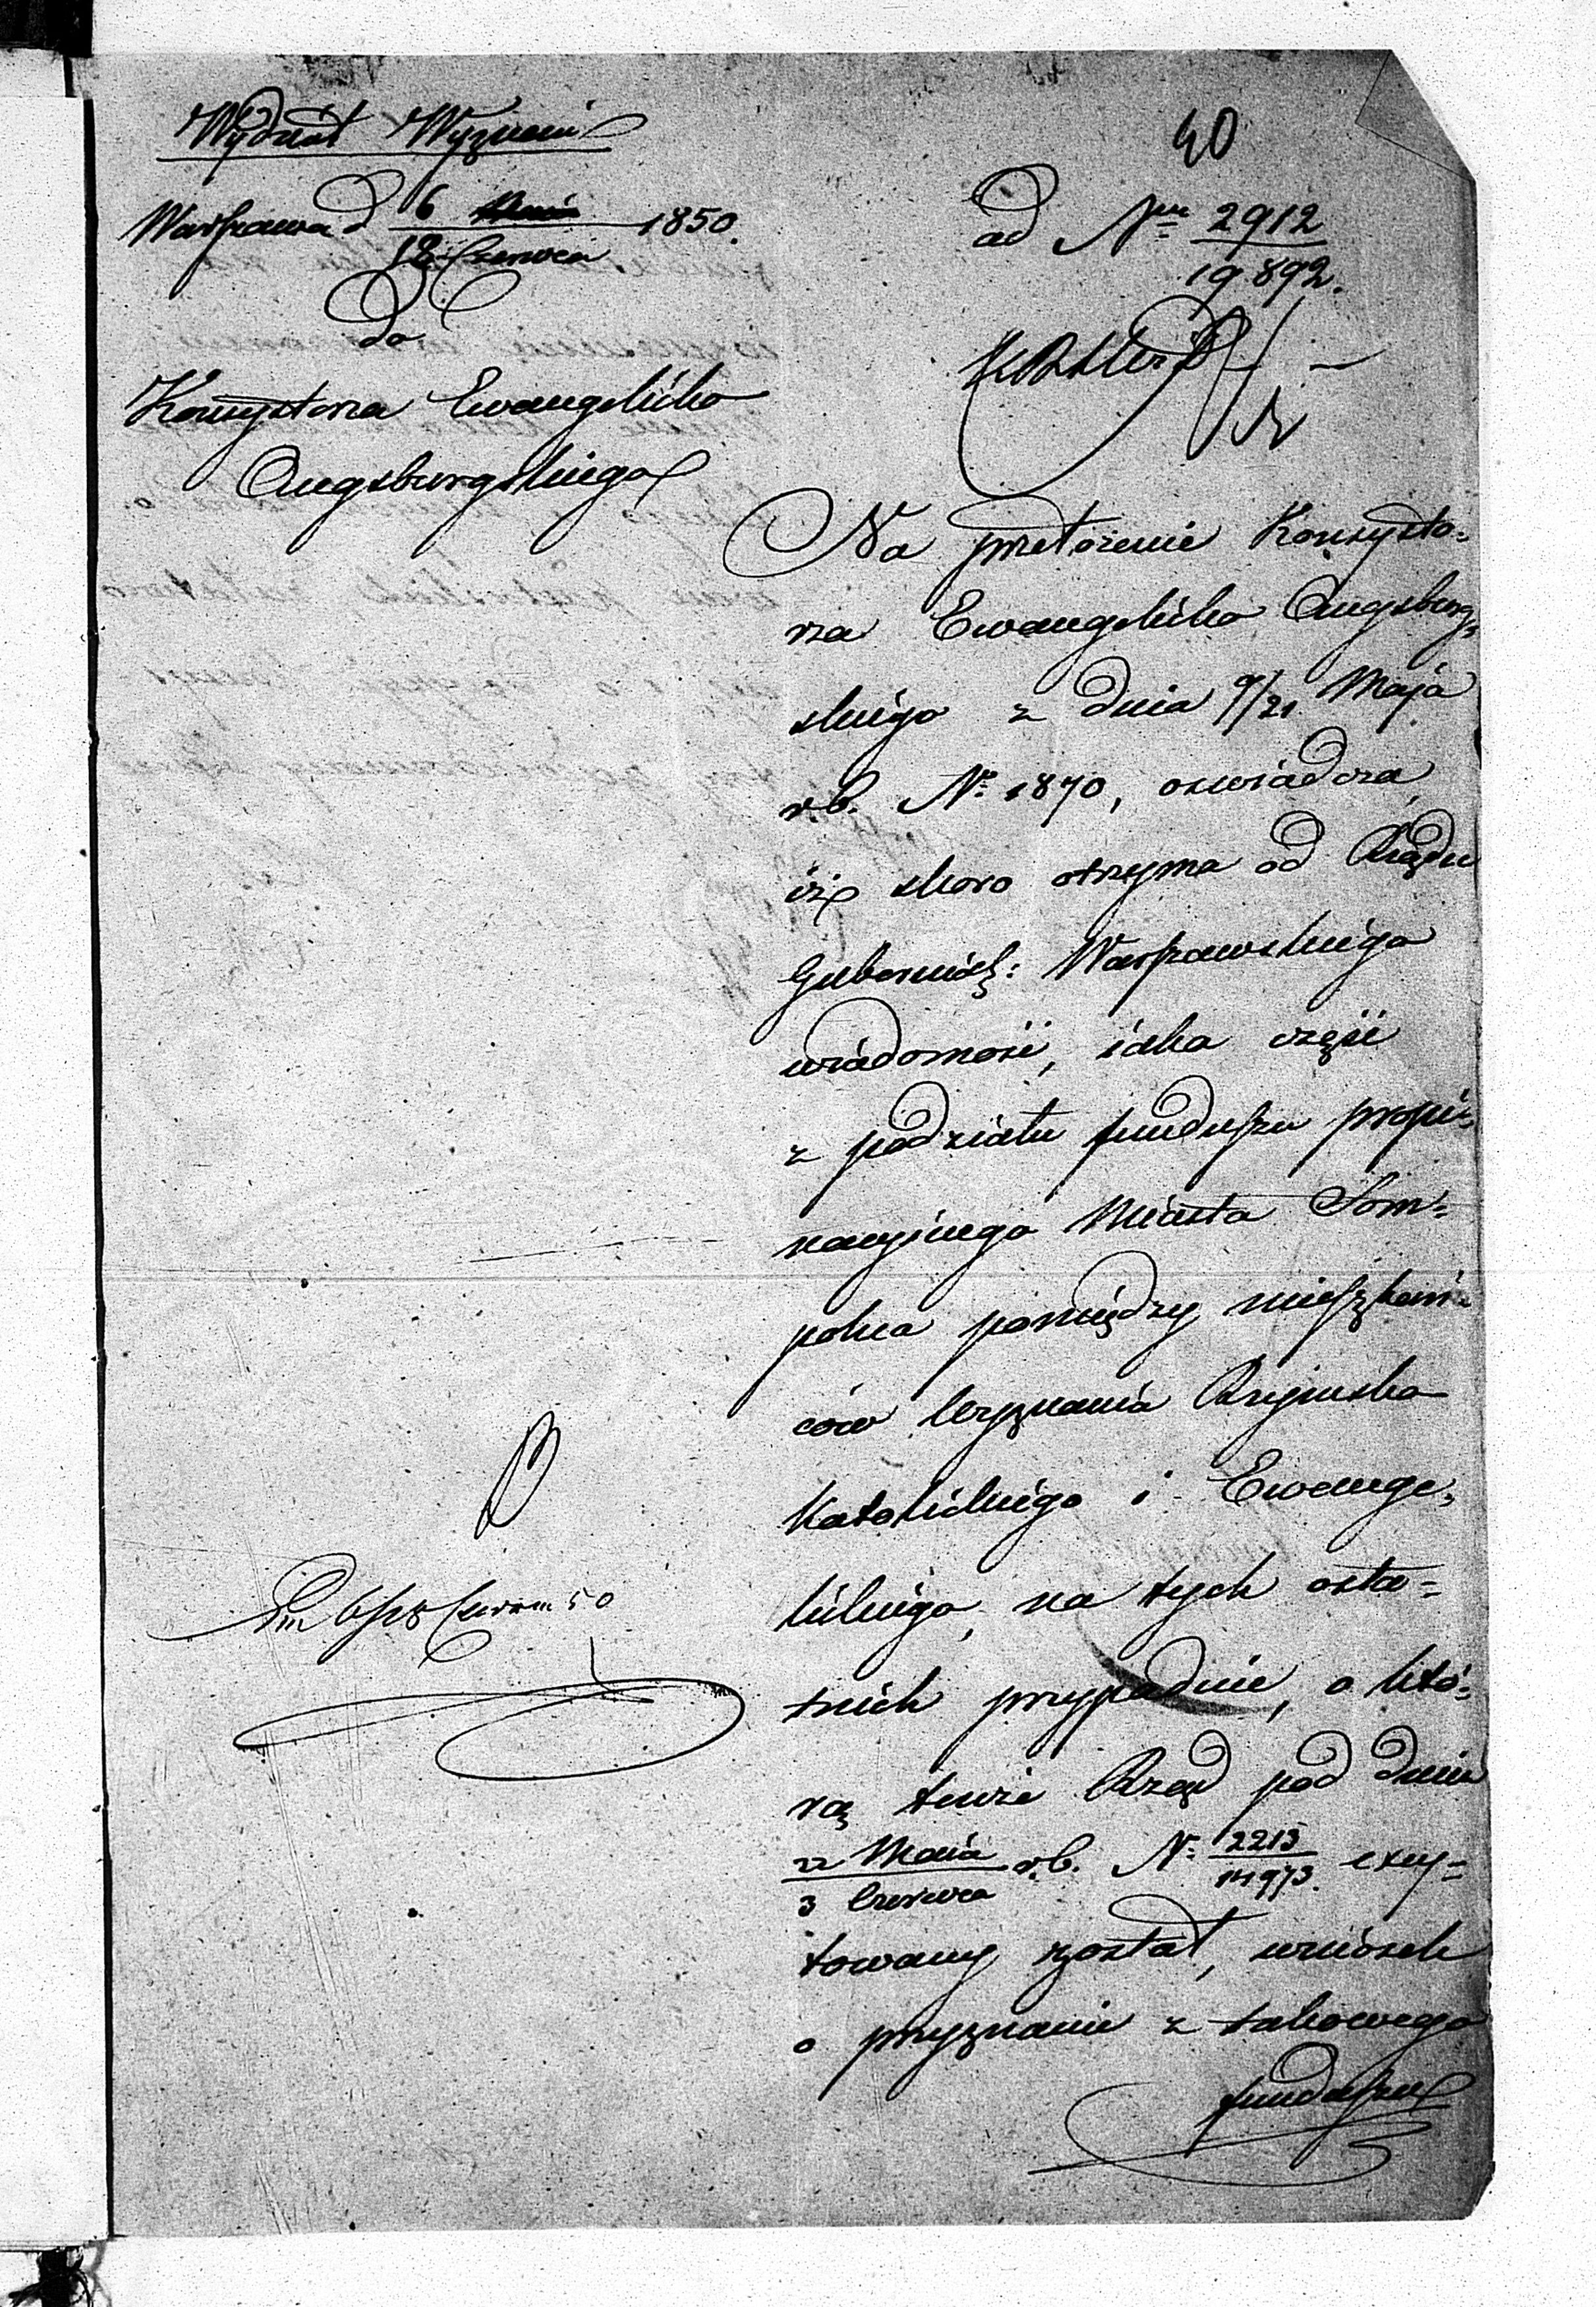 Wydział Wyznań
40
Warszawa d 6/18 Czerwca 1850.
ad Nr 2912/19.892.
do
Konsystorza Ewangelicko
Augsburgskiego
Na przełożenie Konsysto=
rza Ewangelicko Augsburg=
skiego z dnia 9/21 Maja
rb. Nº 1870, oswiadcza
iż skoro otrzyma od Rządu
Gubernial: Warszawskiego
wiadomość, iaka część
z podziału funduszu propi=
nacyinego Miasta Som=
polna pomiędzy mieszkań=
ców Wyznania Rzymsko
Katolickiego i Ewange=
lickiego, na tych osta=
tnich przypadnie, o któ=
rą tenże Rząd pod dniem
22 Maia/3 Czerwca r.b. Nº 2213/14973 excy=
towany został, wniosek
o przyznanie z takowego
funduszu
6/18 Czerwca 50